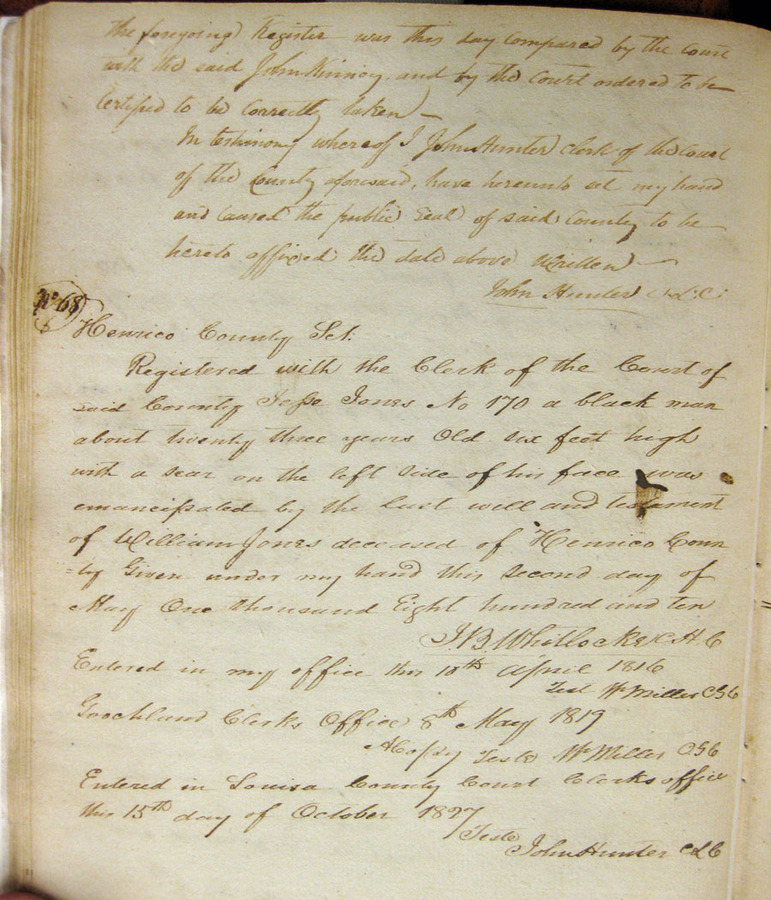 the foregoing Register was this day compared by the Court
with the said John Kinney, and by the Court ordered to be
Certified to be Correctly taken —
In testimony whereof I John Hunter clerk of the Court
of the County aforesaid, have hereunto set my hand
and caused the public seal of said County to be
hereto affixed the date above written —
John Hunter C.L.C.
No 68
Henrico County Sct.
Registered with the Clerk of the Court of
said County Jesse Jones No 170 a black man
about twenty three years Old six feet high
with a scar on the left side of his face was
emancipated by the Last will and testament
of William Jones deceased of Henrico Coun
=ty Given under my hand this second day of
May One thousand Eight hundred and ten
J. B. Whitlocke C H C
Entered in my office this 10th April 1816
Test Wm Miller CGC
Goochland Clerks Office 8th May 1819
A Copy Teste Wm Miller CGC
Entered in Louisa County Court Clerks office
this 15th day of October 1827
Teste
John Hunter CLC